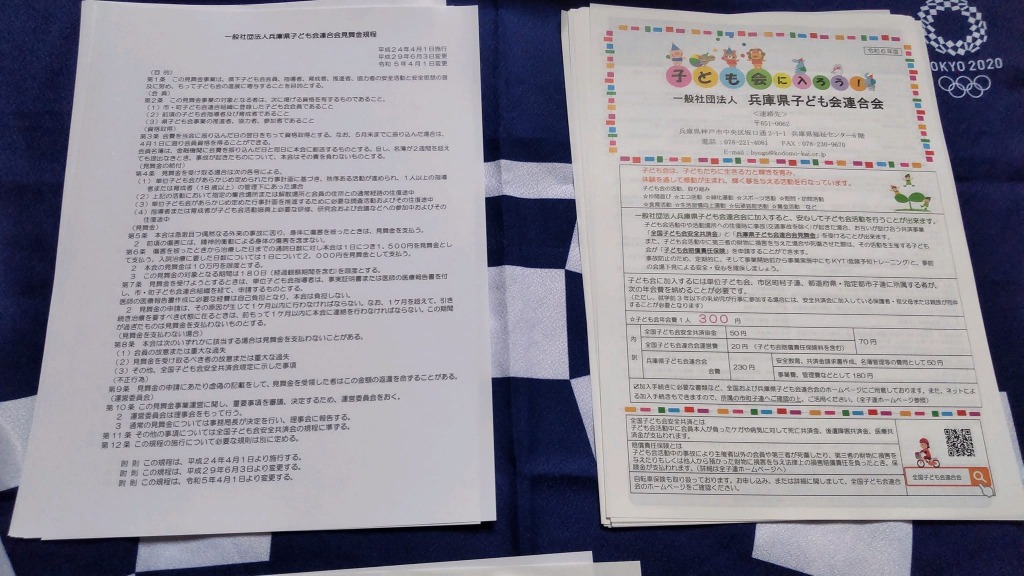 一般社団法人兵庫県子ども会連合会見舞金規程
平成24年4月1日施行
平成29年6月3日変更
令和5年4月1日変更
（目 的）
第1条 この見舞金事業は、県下子ども会会員、指導者、育成者、推進者、協力者の安全活動と安全思想の普
及に努め、もって子ども会の進展に寄与することを目的とする。
（会 員）
第2条 この見舞金事業の対象となる者は、次に掲げる資格を有するものであること。
（1）市・町子ども会連合組織に登録した子ども会会員であること
（2）前項の子ども会指導者及び育成者であること
（3）県子ども会事業の推進者、協力者、参加者であること
（資格取得）
第3条 会費を当会に振り込んだ日の翌日をもって資格取得とする。なお、5月末までに振り込んだ場合は、
4月1日に遡り会員資格を得ることができる。
会員名簿は、金融機関に会費を振り込んだ日と同日に本会に郵送するものとする。但し、名簿が2週間を超え
ても提出なきとき、事故が起きたものについて、本会はその責を負わないものとする。
（見舞金の給付）
第4条 見舞金を受け取る場合は次の各号による。
（1）単位子ども会があらかじめ定められた行事計画に基づき、秩序ある活動が進められ、1人以上の指導
者または育成者（18歳以上）の管理下にあった場合
（2）上記の活動において指定の集合場所または解散場所と会員の住所との通常経路の往復途中
（3）単位子ども会があらかじめ定めた行事計画を推進するために必要な調査活動およびその往復途中
（4）指導者または育成者が子ども会活動振興上必要な研修、研究会および会議などへの参加中およびその
往復途中
（見舞金）
第5条 本会は急激且つ偶然なる外来の事故に因り、身体に傷害を被ったときは、見舞金を支払う。
2 前項の傷害には、精神的衝動による身体の傷害を含まない。
第6条 傷害を被ったときから治癒した日までの通院日数に対し本会は1日につき1,500円を見舞金とし
て支払う。入院治療に要した日数については1日について2,000円を見舞金として支払う。
2 本会の見舞金は10万円を限度とする。
3 この見舞金の対象となる期間は180日（経過観察期間を含む）を限度とする。
第7条 見舞金を受けようとするときは、単位子ども会指導者は、事実証明書または医師の医療報告書を付
し、市・町子ども会連合組織を経て、申請するものとする。
医師の医療報告書作成に必要な経費は自己負担となり、本会は負担しない。
2 見舞金の申請は、その原因が生じて1ケ月以内に行わなければならない。なお、1ケ月を超えて、引き
続き治療を要すべき状態に在るときは、前もって1ケ月以内に本会に連絡を行わなければならない。この期間
が過ぎたものは見舞金を支払わないものとする。
（見舞金を支払わない場合）
第8条 本会は次のいずれかに該当する場合は見舞金を支払わないことがある。
（1）会員の故意または重大な過失
（2）見舞金を受け取るべき者の故意または重大な過失
（3）その他、全国子ども会安全共済会規定に示した事項
（不正行為）
第9条 見舞金の申請にあたり虚偽の記載をして、見舞金を受領した者はこの金額の返還を命ずることがある。
（運営委員会）
第10条 この見舞金事業運営に関し、重要事項を審議、決定するため、運営委員会をおく。
2 運営委員会は理事会をもって行う。
3 通常の見舞金については事務局長が決定を行い、理事会に報告する。
第11条 その他の事項については全国子ども会安全共済会の規程に準ずる。
第12条 この規程の施行について必要な規則は別に定める。
附 則 この規程は、平成24年4月1日より施行する。
附 則 この規程は、平成29年6月3日より変更する。
附 則 この規程は、令和5年4月1日より変更する。
令和6年度
子ども会に入ろう！
一般社団法人 兵庫県子ども会連合会
＜連絡先＞
〒651-0062
兵庫県神戸市中央区坂口通2-1-1 兵庫県福祉センター6階
電話：078-221-4081 FAX：078-230-9670
E-mail：hyogo@kodomo-kai.or.jp
子ども会は、子どもたちに生きる力と輝きを育み、
体験を通して感動が生まれ、輝く夢を与える活動を行なっています。
子ども会の活動、取り組み
☆仲間遊び ☆エコ活動 ☆緑化運動 ☆スポーツ活動 ☆慰問・訪問活動
☆食育活動 ☆生活習慣向上運動 ☆伝承芸能活動 ☆募金活動 など
一般社団法人兵庫県子ども会連合会に加入すると、安心して子ども会活動を行うことが出来ます。
子ども会活動中や活動場所への往復時に事故（交通事故を除く）が起きた場合、お互いが助け合う共済事業
「全国子ども会安全共済会」と「兵庫県子ども会連合会見舞金」を受けることが出来ます。
また、子ども会活動中に第三者の財物に損害を与えた場合や死傷させた際は、その活動を主催する子ども
会が「子ども会賠償責任保険」を申請することができます。
事故防止のため、定期的に、そして事業開始前から事業実施中にもKYT（危険予知トレーニング）と、事前
の会場下見による安全・安心を確保しましょう。
子ども会に加入するには単位子ども会、市区町村子連、都道府県・指定都市子連に所属する者が、
次の年会費を納めることが必要です。
（ただし、就学前3年以下の乳幼児が行事に参加する場合には、安全共済会に加入している保護者・祖父母または親族が同伴
することが必要となります）
☆子ども会年会費1人 300円
内訳
全国子ども会安全共済掛金 50円
全国子ども会連合会運営費 20円（子ども会賠償責任保険料を含む）
70円
兵庫県子ども会連合会
会費
230円
安全教育、共済金請求書作成、名簿管理等の費用として50円
事業費、管理費などとして180円
☑加入手続きに必要な書類など、全国および兵庫県子ども会連合会のホームページにご用意しております。また、ネットによ
る加入手続きもできますので、所属の市町子連へご確認の上、ご活用ください。（全子連ホームページ参照）
全国子ども会安全共済会とは
子ども会活動中に会員本人が負ったケガや病気に対して死亡共済金、後遺障害共済金、医療共
済金が支払われます。
賠償責任保険とは
子ども会活動中の事故により主催者以外の会員や第三者が死傷したり、第三者の財物に損害を
与えたりもしくは他人から預かった財物に損害を与え法律上の損害賠償責任を負ったとき、保
険金が支払われます。（詳細は全子連ホームページへ）
自転車保険も取り扱っております。お申し込み、または詳細に関しまして、全国子ども会連合
会のホームページをご確認ください。
全国子ども会連合会
TOKYO 2020